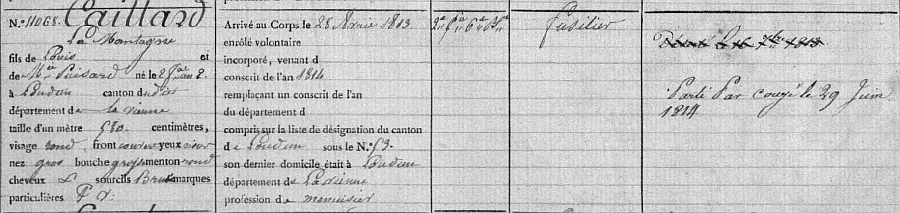 N.° 11068. Caillard
La Montagne
fils de Louis et
de M.ie Puisard né le 2 an 2.
à Loudun canton dudit
département de la Vienne
taille d'un mètre 580. centimètres,
visage rond, front couvert yeux noir
nez gros bouche gros menton rond
cheveux & sourcils Brun marques
particulières
Arrivé au Corps le 28 Avril 1813
enrôlé volontaire
incorporé, venant d
conscrit de l'an 1814
remplaçant un conscrit de l'an
du département d
compris sur la liste de désignation du canton
de Loudun sous le N.° 53.
son dernier domicile était à Loudun
département de La Vienne
profession de menuisier
2e 6e Bon
Fusilier
Déserté le 16 7bre 1813
Parti Par congé le 29 Juin
1814